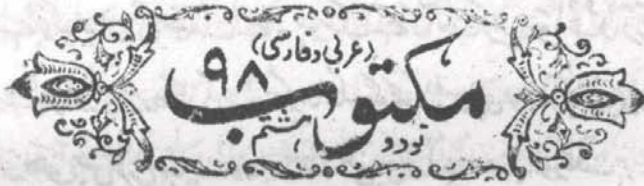 (عربی و فارسی)
مکتوب ۹۸
نود و ہشتم